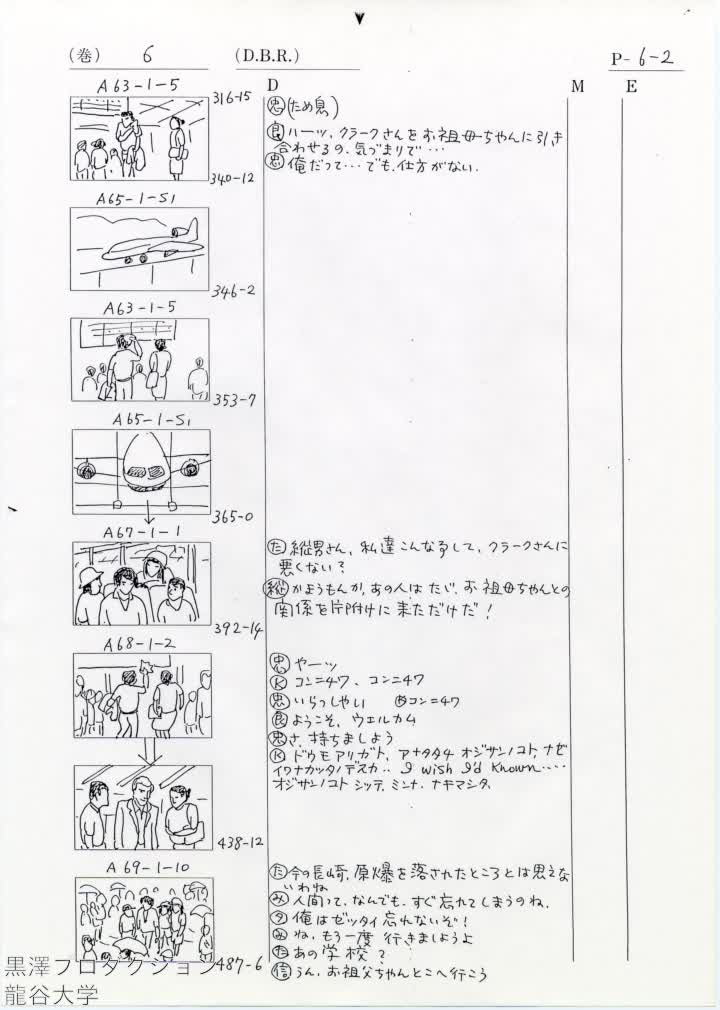 (巻) 6 (D.B.R.) P-6-2
D M E
A63-1-5
316-15
忠 (ため息)
良 ハーッ、クラークさんをお祖母ちゃんに引き
合わせるの、気づまりで…
忠 俺だって…でも、仕方がない.
340-12
A65-1-S1
346-2
A63-1-5
353-7
A65-1-S1
365-0
A67-1-1
た 縦男さん、私達こんな
して、クラークさんに
悪くない?
縦 かまうもんか、あの人はただ、お祖母ちゃんとの
関係を片附けに来ただけだ!
392-14
A68-1-2
忠 ヤーッ
K コンニチワ、コンニチワ
忠 いらっしゃい コンニチワ
良 ようこそ、ウエルカム
忠 さ、持ちましょう
K ドウモアリガト、アナタタチ オジサンノコト、ナゼ
イワナカッタノデスカ‥ I wish I'd known‥‥
オジサンノコト シッテ、ミンナ、ナキマシタ、
438-12
A69-1-10
た 今の長崎、原爆を落されたところとは思えな
いわね
み 人間って、なんでも、すぐ忘れてしまうのね.
タ 俺はゼッタイ忘れないぞ!
み ね、もう一度行きましょうよ
た あの学校?
信 うん、お祖父ちゃんとこへ行こう
487-6
黒澤プロダクション
龍谷大学